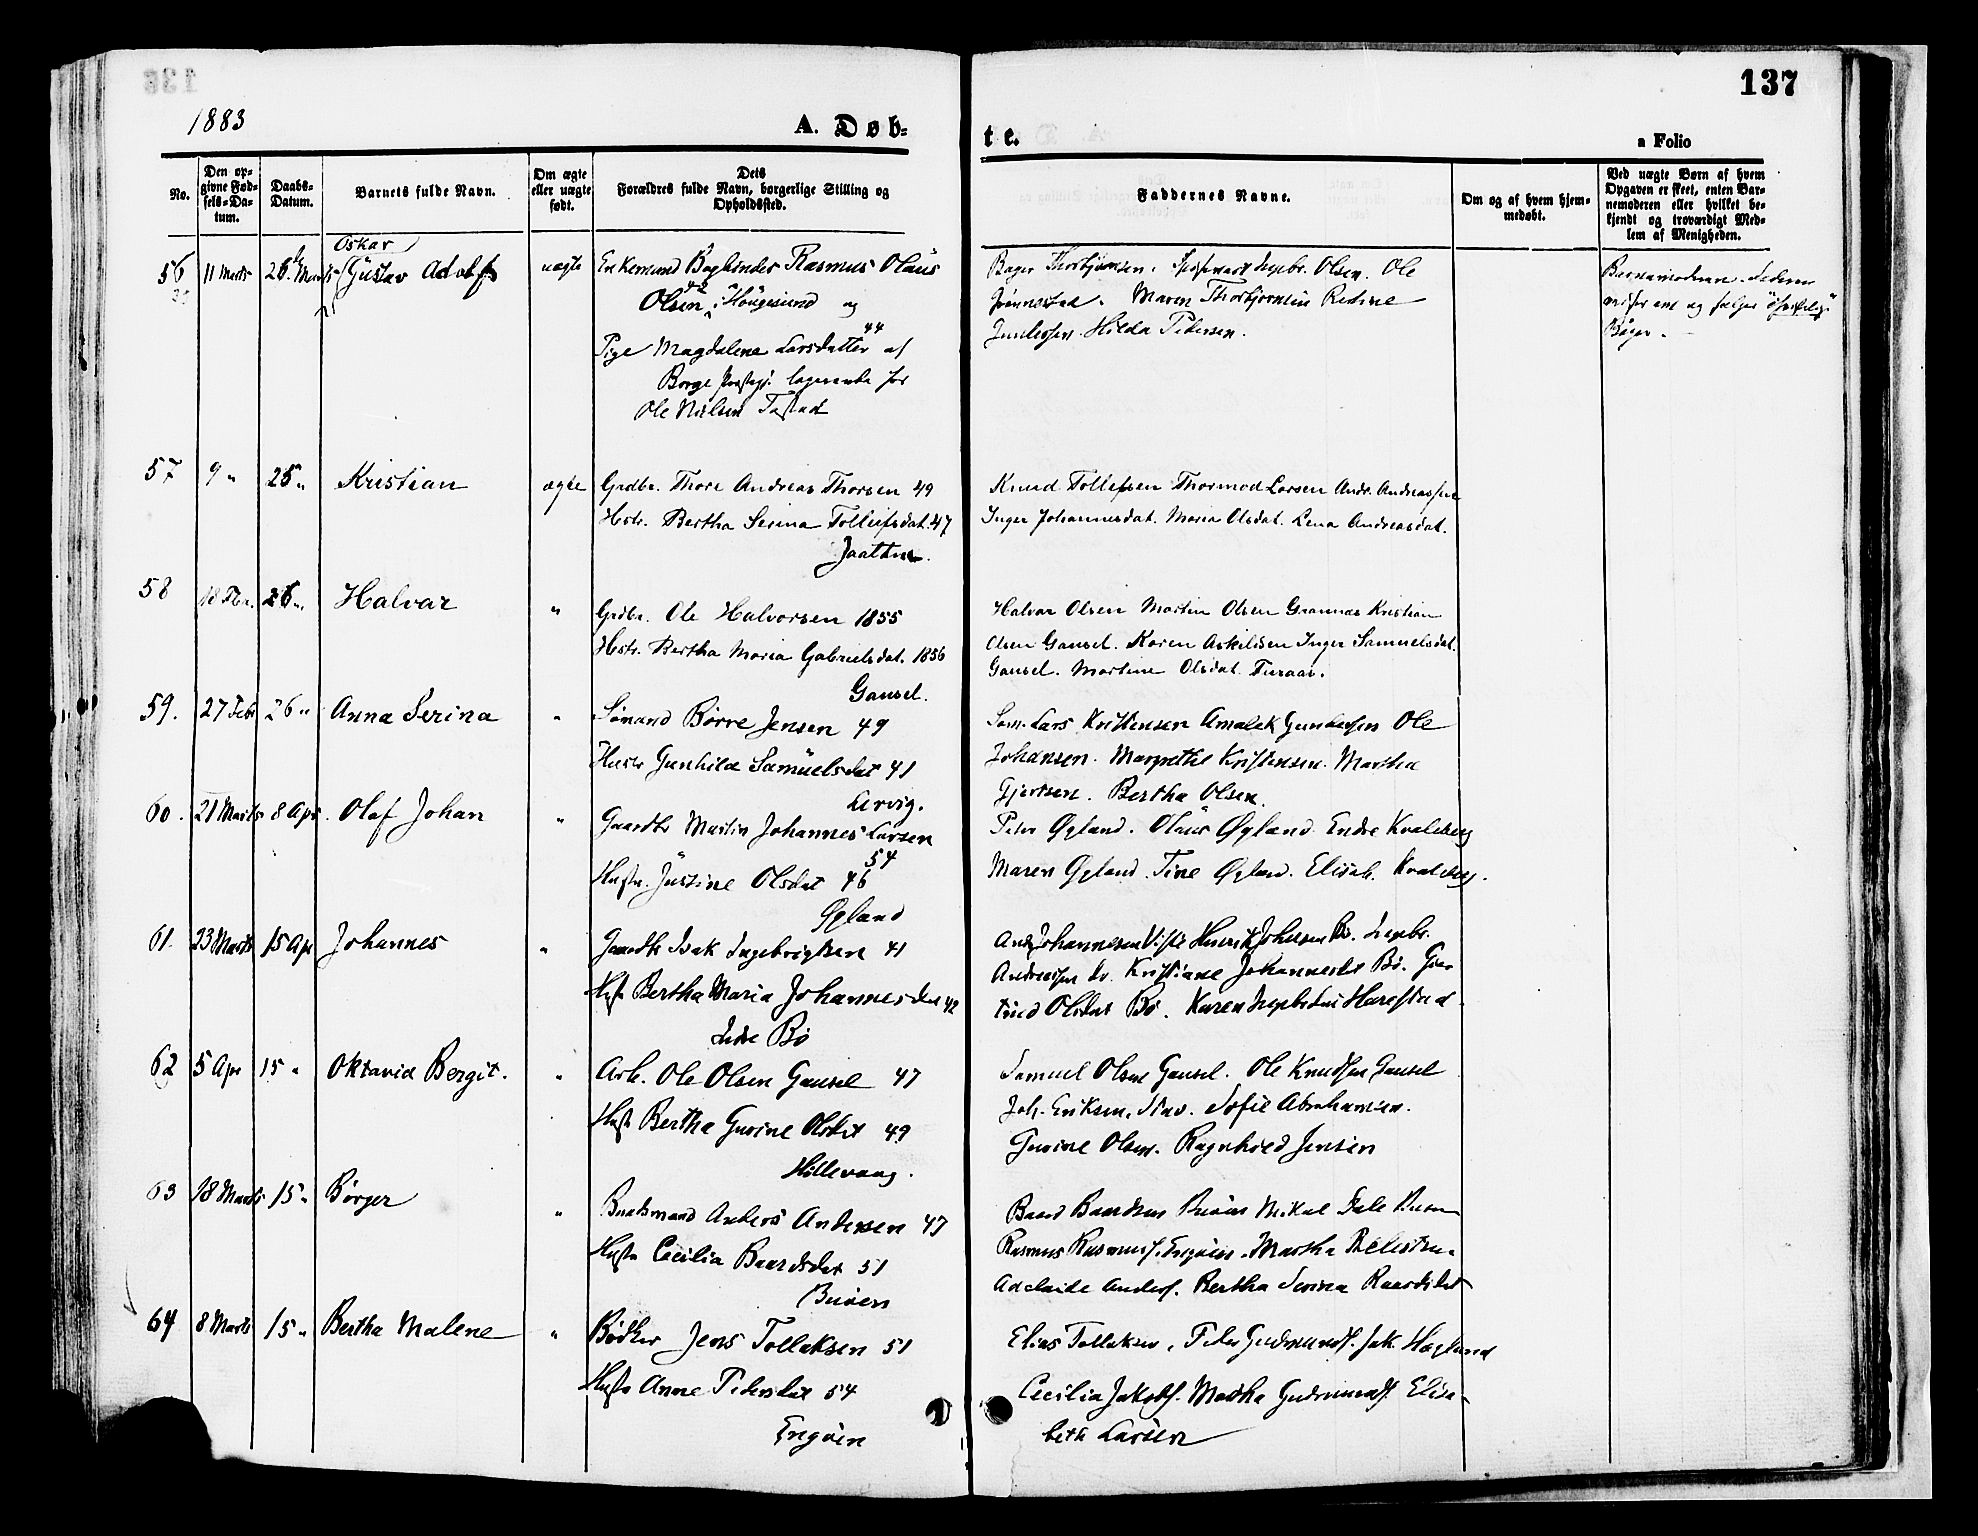 137
1883
A. Døb-
te.
a Folio
No.
Den op-
givne Fød-
sels-Da-
tum.
Daabs-
Datum.
Barnets fulde Navn.
Om ægte
eller uægte
født.
Dets
Forældres fulde Navn, borgerlige Stilling og
Opholdssted.
Faddernes Navne.
Om og af hvem hjem-
medøbt.
Ved uægte Børn af hvem
Opgaven er skeet, enten Bar-
nemoderen eller hvilket be-
kjendt og troværdigt Med-
lem af Menigheden.
Oskar
56 11 Marts 26. Marts Gustav Adolf uægte Enkemand Rasmus Olaus
Olsen 42 Haugesund og
Pige Magdalene Larsdatter 44 af
Borge logerende for
Ole Nielsen Tastad
Bager Thorbjørnsen. Ingebr. Olsen. Ole
Maren Thorbjørnsen
Hilda Pedersen.
Barnemoderen.
og følge
57 9 " 25 " Kristian ægte Grdbr. Thore Andreas Thorsen 49
Hstr. Bertha Serina Tolleifsdat. 47
Jaatten.
Knud Tollefsen Thormod Larsen Andr. Andreassen
Inger Johannesdat. Maria Olsdat. Lena Andreasdat.
58 18 Fbr. 26 ". Halvar " Grdbr. Ole Halvorsen 1855
Hstr. Bertha Maria Gabrielsdat. 1856
Gausel.
Halvar Olsen Martin Olsen Grannæs Kristian
Olsen Gausel. Karen Askildsen Inger Samuelsdat.
Gausel. Martine Olsdat.
59. 27 Febr 26 " Anna Serina " Sømand Børre Jensen 49
Hustr Gunhild Samuelsdat 41
Lervig.
Søm. Lars Kristensen Amalek Gundersen Ole
Johansen. Margrethe Kristensen. Martha
Gjertsen. Bertha Olsen.
60. 21 Marts 8 Apr. Olaf Johan " Gaardbr Martin Johannes Larsen
54
Hustr. Justine Olsdat 46
Øgland
Peter Øgland. Olaus Øgland. Endre Kvaleberg
Maren Øgland. Tine Øgland. Elisab. Kvaleberg.
61. 23 Marts 15 Apr Johannes " Gaardbr Isak Ingebrigtsen 41
Hustr Bertha Maria Johannesdat 42
Indre Bø
Andr Johannesen Viste Henrik Johnsen Bø. Ingebr.
Andreassen do. Kristiane Johannesdt Bø. Gjer-
trud Olsdat Bø. Karen Ingebrdat Harestad.
62 5 Apr 15 " Oktavia Bergit. " Arb. Ole Olsen Gausel 47
Hustr Bertha Gurine Olsdat 49
Hillevaag.
Samuel Olsen Gausel. Ole Knudsen Gausel
Joh. Eriksen, Stav. Sofie Abrahamsen.
Gurine Olsen. Ragnhild Jensen
63 18 Marts 15 " Børger " Baadsmand Anders Andersen 47
Hustr Cecilia Baardsdat 51
Buøen
Baard Baardsen Buøen Mikal Dale Buøen
Rasmus Rasmuss. Engøen. Martha
Adelaide Anders. Bertha Serina Baardsdat
64 8 Marts 15 " Bertha Malene " Bødker Jens Tollaksen 51
Hustr Anne Pedersdat 54
Engøen
Elias Tollaksen, Peder Gudmunds. Jak. Høgland
Cecilia Jakobs. Martha Gudmunds. Elisa-
beth Larsen